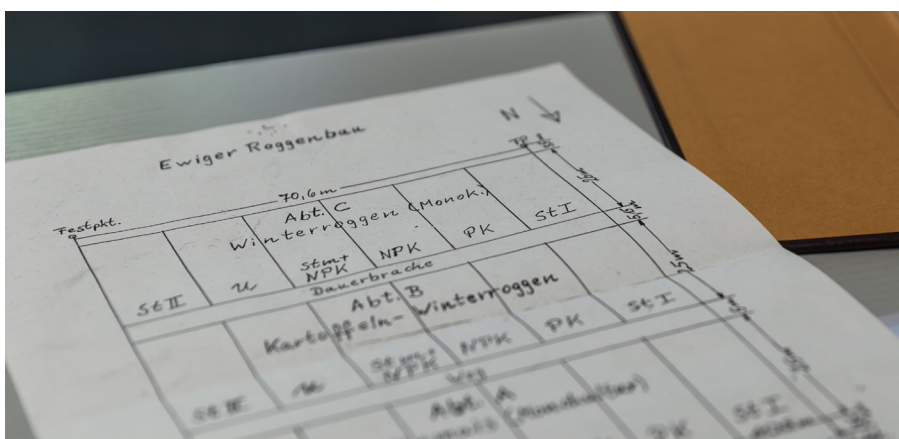 Ewiger Roggenbau
N
Festpkt.
70,6m
FP
Abt. C
Winterroggen (Monok.)
St II
U
Stm+
NPK
NPK
PK
St I
Dauerbrache
Abt. B
Kartoffeln- Winterroggen
St II
U
Stm+
NPK
NPK
PK
St I
Weg
25m
Abt. A
PK
St I